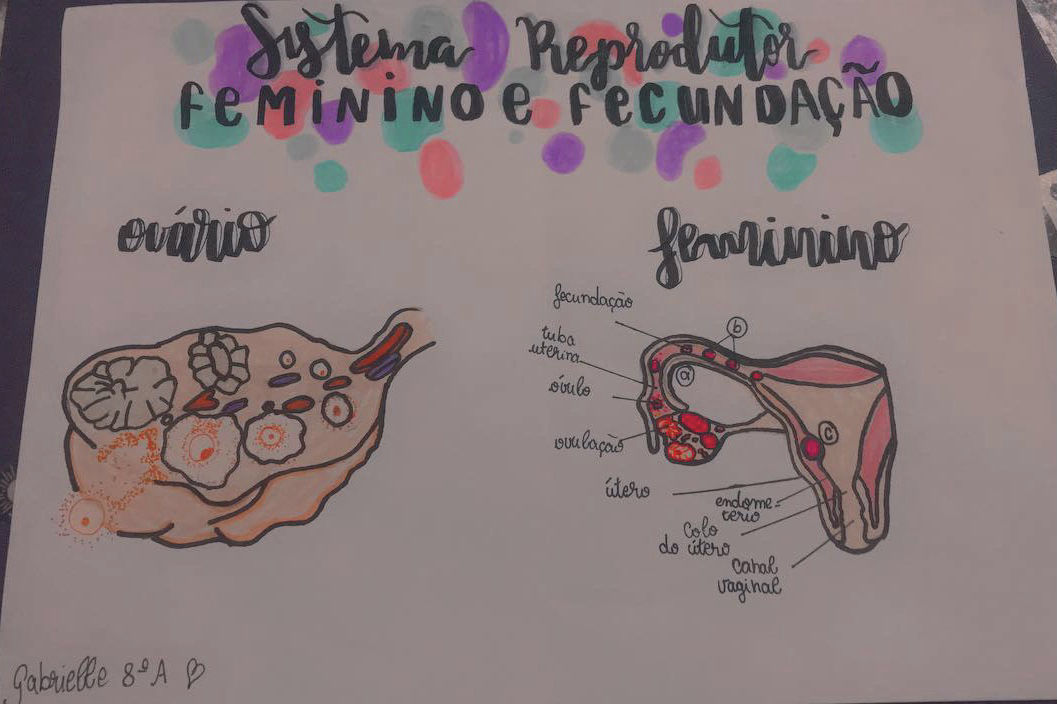 Sistema Reprodutor
FEMININO e FECUNDAÇÃO
ovário
feminino
fecundação
b
tuba
uterina
a
óvulo
ovulação
c
útero
endome=
tério
Colo
do útero
Canal
vaginal
Gabrielle 8º A